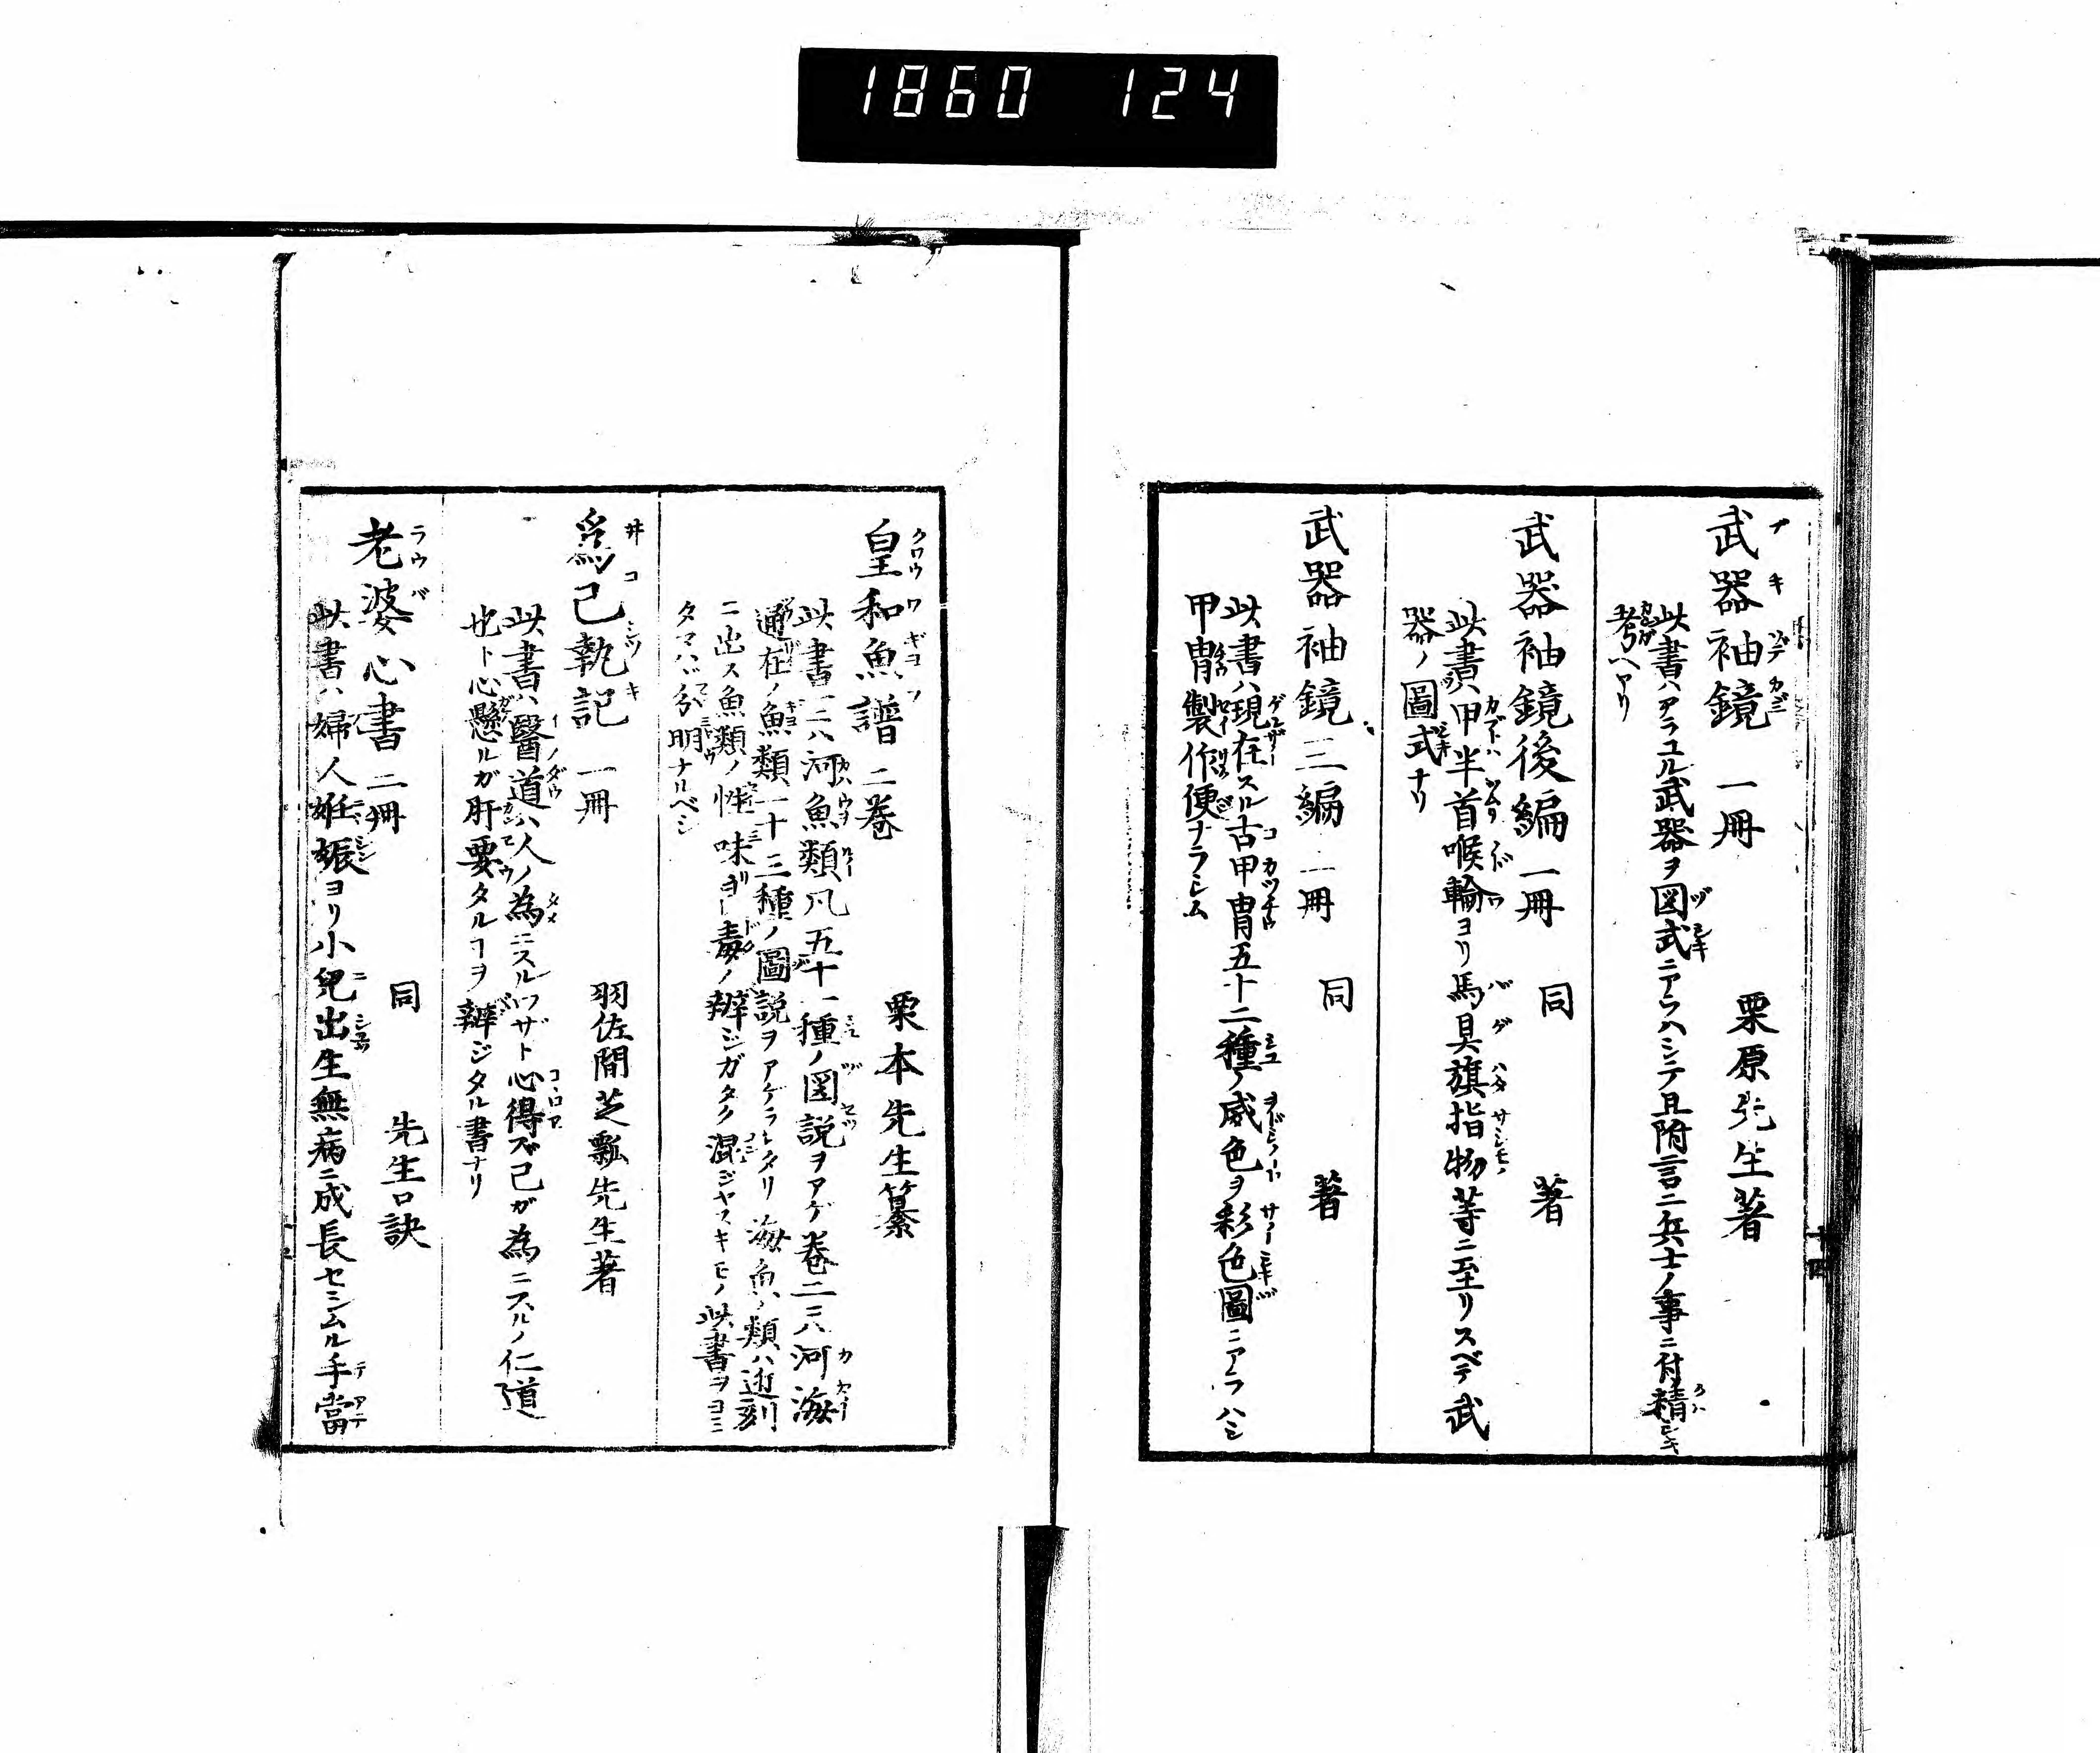 1860 124
武器袖鏡 一冊 栗原先生著
此書ハアラユル武器ヲ図式ニアラハシテ且附言ニ兵士ノ事ニ付精シキ
考ヘアリ
武器袖鏡後編 一冊 同 著
此書ハ甲半首喉輪ヨリ馬具旗指物等ニ至リスベテ武
器ノ圖式ナリ
武器袖鏡三編 一冊 同 著
此書ハ現在スル古甲冑五十二種ノ威色ヲ彩色圖ニアラハシ
甲冑製作便ナラシム
皇和魚譜 二巻 栗本先生纂
此書一ハ河魚類凡五十一種ノ図説ヲアゲ巻二ハ河海
通在ノ魚類一十三種ノ圖説ヲアゲラレタリ海魚ノ類ハ近刻
ニ出ス魚類ノ性味ヨリ毒ノ辨ジガタク混ジヤスキモノ此書ヲヨミ
タマハバ分明ナルベシ
爲己執記 一冊 羽佐間芝瓢先生著
此書ハ醫道ハ人ノ為ニスルワザト心得ズ己ガ為ニスルノ仁道
也ト心懸ルガ肝要タルヿヲ辨ジタル書ナリ
老婆心書 二冊 同 先生口訣
此書ハ婦人姙娠ヨリ小兒出生無病ニ成長セシムル手當